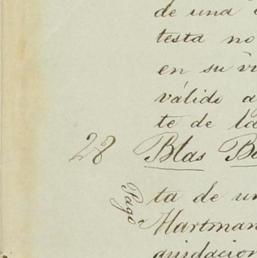 de una
testa no
en su vi
válido a
te de la
28 Blas Be
Pagó
ta de un
Hartman
quidacion